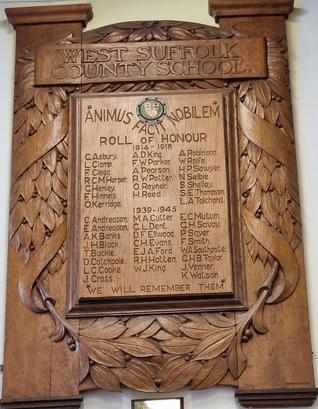 WEST SUFFOLK
COUNTY SCHOOL
ANIMUS FACIT NOBILEM
ROLL OF HONOUR
1914 - 1918
C. Asbury. A.D. King. A. Robinson.
L. Clamp. F.W. Parker. W. Rolfe.
F. Clegg. A. Pearson. H.P. Sawyer.
R.C.M. Harper. R.W. Potter. N. Selbie
C. Henley. O. Rayner. S. Shelley.
E. Hinnels. H. Reed. S.E. Thompson.
O. Kerridge. L.A. Tolchard.
1939-1945
C. Andreason. M.A. Cutter. E.C. Mutum.
E. Andreason. G.L. Dent. G.H. Savay.
A.K. Banks. D.F. Ellwood. P. Sayer
J.H. Black. C.H. Evans. F. Smith.
T. Buckle. E.J.A. Ford. W.A. Southgate
D. Catchpole. R.H. Hatten. C.H.B. Taylor.
L.C. Cooke. W.J. King. J. Venner.
J. Cross. K. Watson.
"WE WILL REMEMBER THEM"